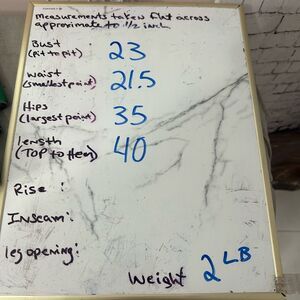 measurements taken flat across
approximate to 1/2 inch
Bust : 23
(Pit to pit)
waist : 21.5
(smallest point)
Hips : 35
(largest point)
length : 40
(Top to Hem)
Rise :
Inseam :
leg opening :
Weight 2 LB